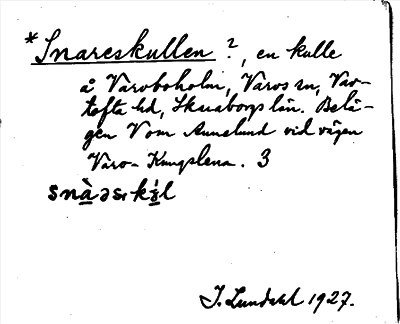 *Snareskullen ?, en kulle
å Varoboholm, Varos sn, Var-
tofta hd, Skaraborgs län. Belä-
gen V om Annelund vid vägen
Varo - Kungslena. 3
J. Lundahl 1927.